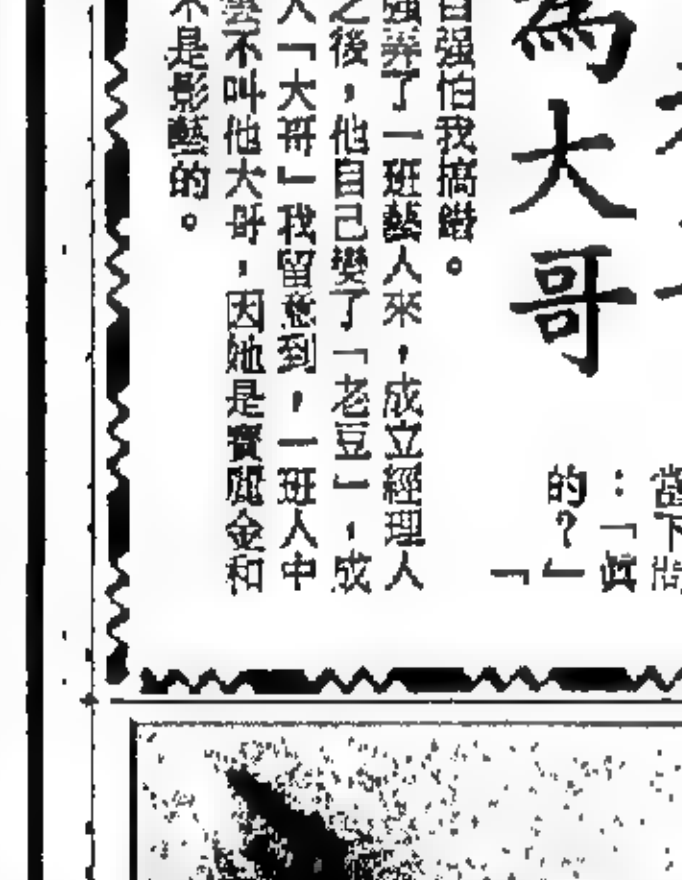 為大哥
當下問
：「眞
的？」
「
自强怕我搞錯。
强弄了一班藝人來，成立經理人
之後，他自己變了「老豆」，成
人「大哥」我留意到，一班人中
不叫他大哥，因她是寶麗金和
不是影藝的。